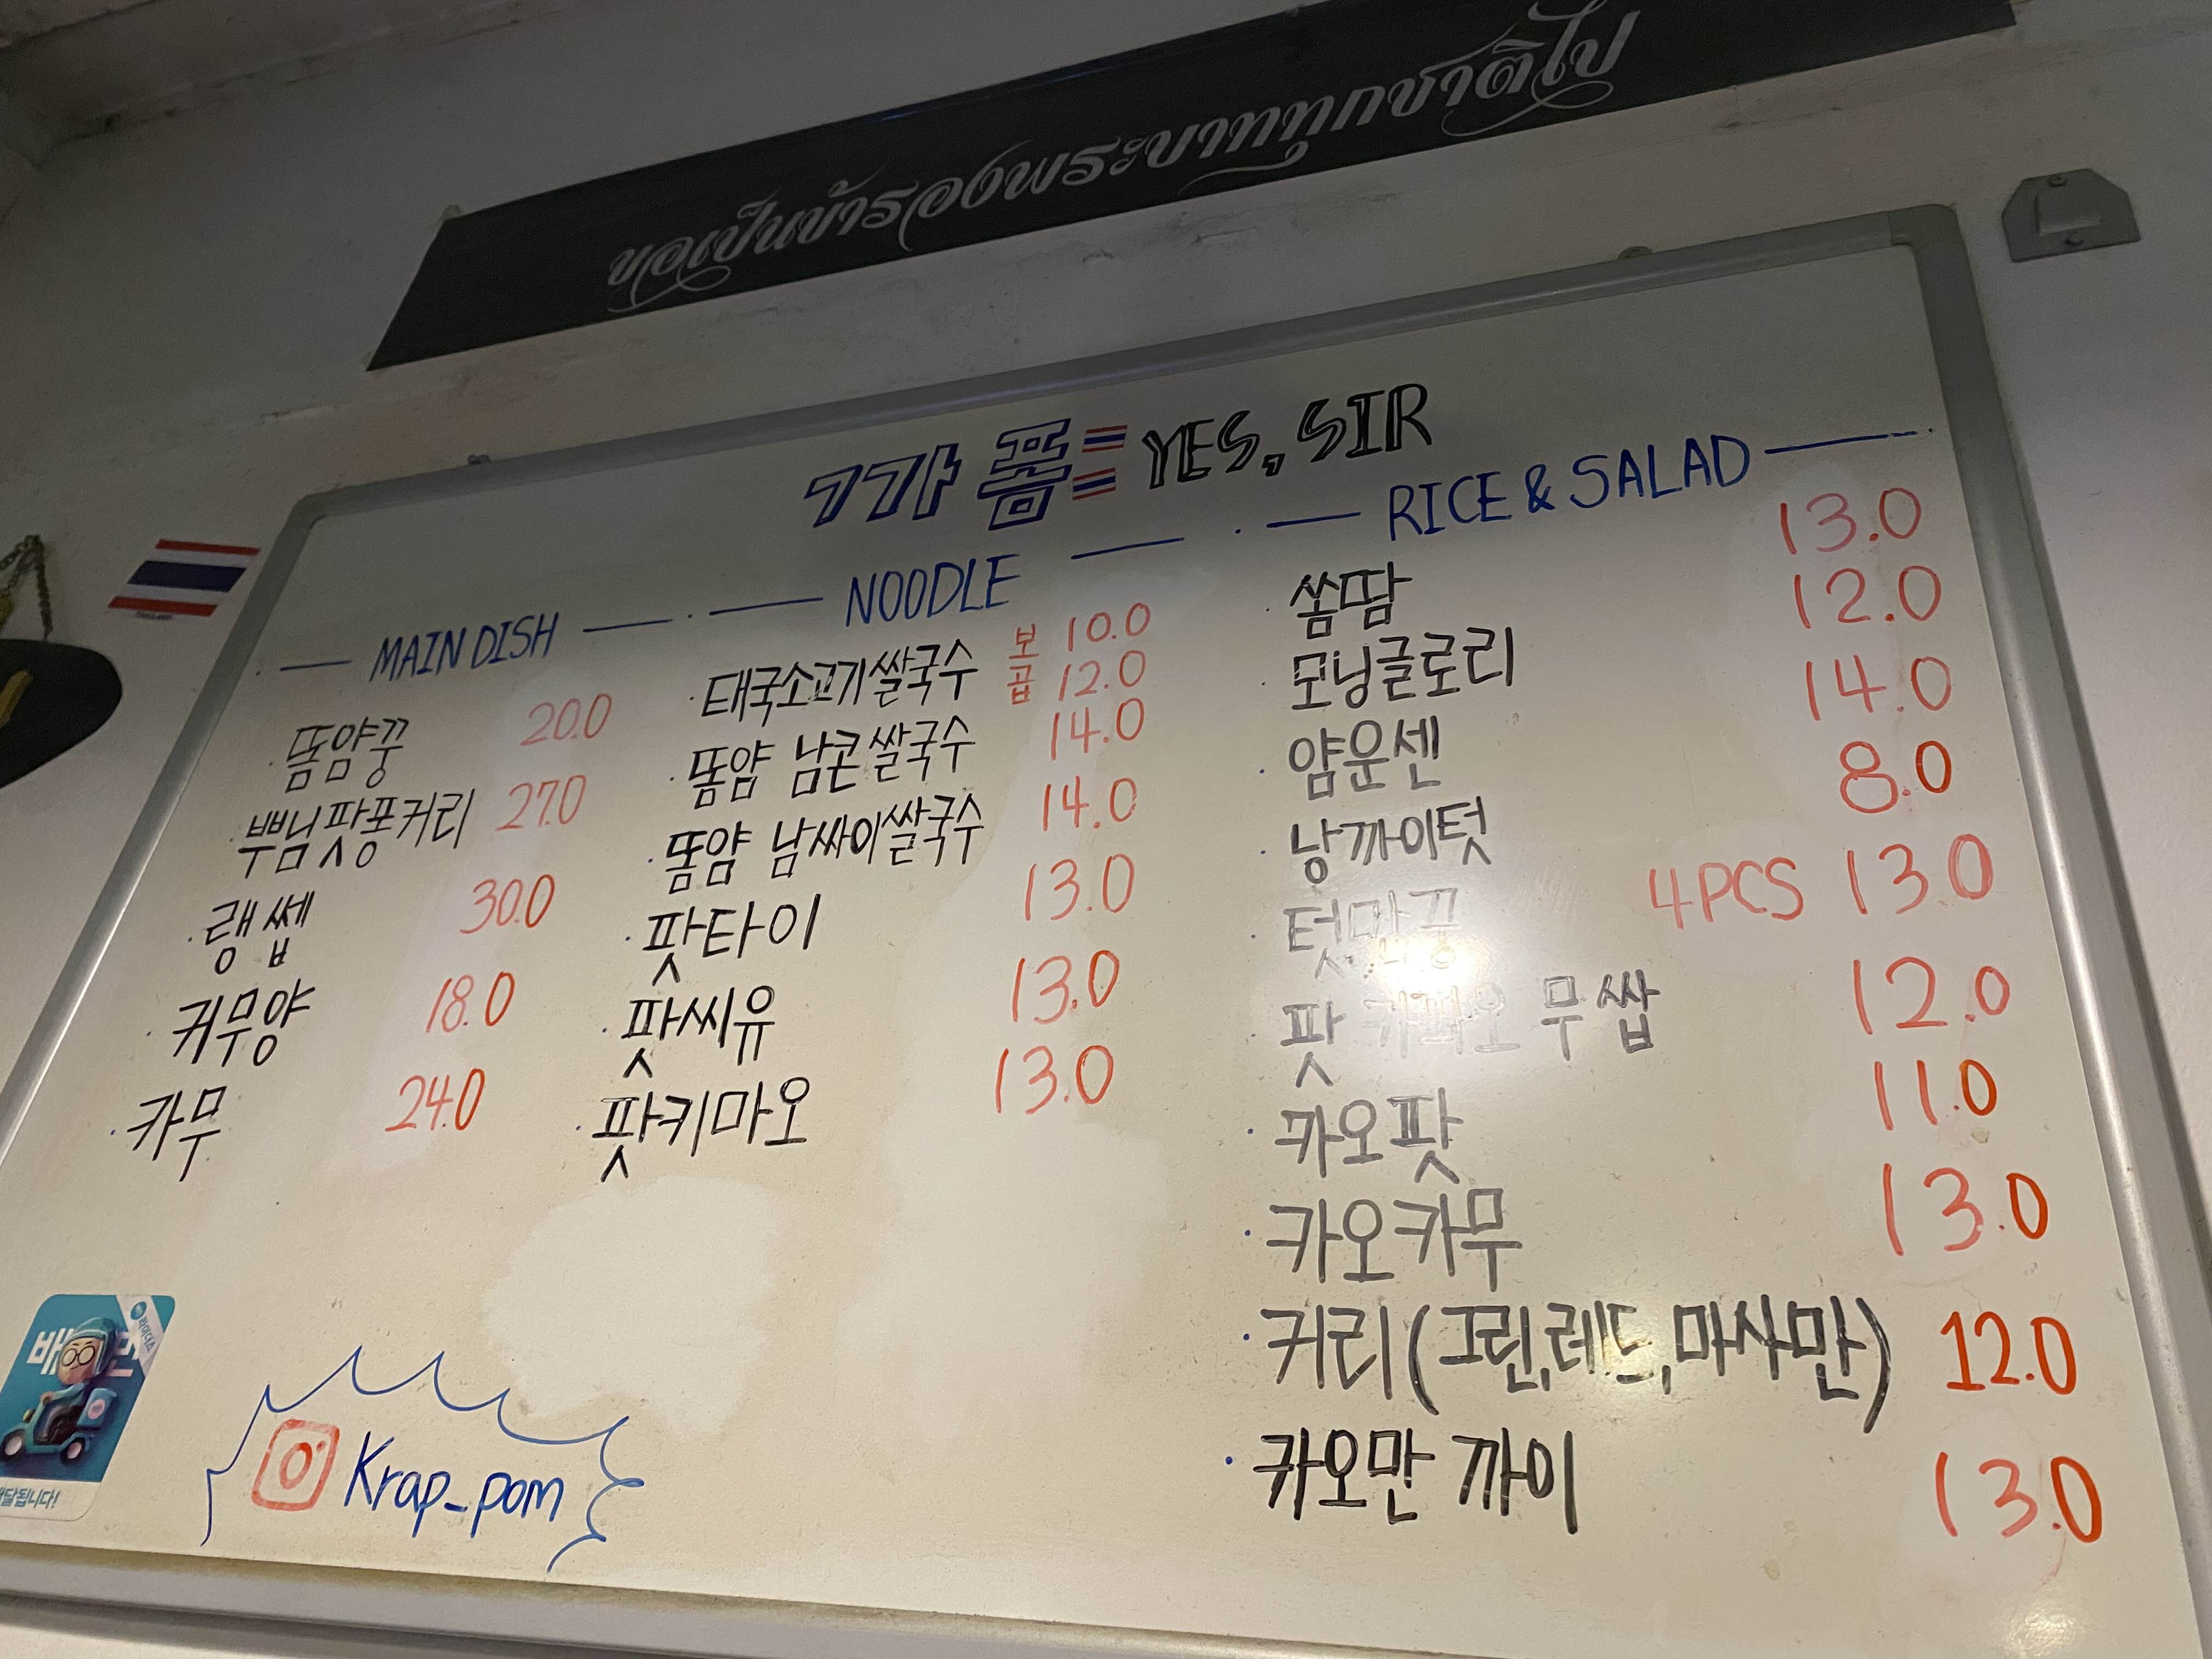 ขอเป็นข้ารองพระบาททุกชาติไป
깝 폼 YES, SIR
MAIN DISH
똠얌꿍 20.0
뿌님팟퐁커리 27.0
랭쌥 30.0
커무양 18.0
카무 24.0
NOODLE
태국소고기쌀국수 보 10.0
곱 12.0
똠얌 남콘쌀국수 14.0
똠얌 남싸이쌀국수 14.0
팟타이 13.0
팟씨유 13.0
팟키마오 13.0
RICE & SALAD
쏨땀 13.0
모닝글로리 12.0
얌운센 14.0
낭까이텃 8.0
텃만꿍 4PCS 13.0
팟 카파오 무쌉 12.0
카오팟 11.0
카오카무 13.0
커리(그린,레드,마사만) 12.0
카오만 까이 13.0
Krap_pom
THAILAND